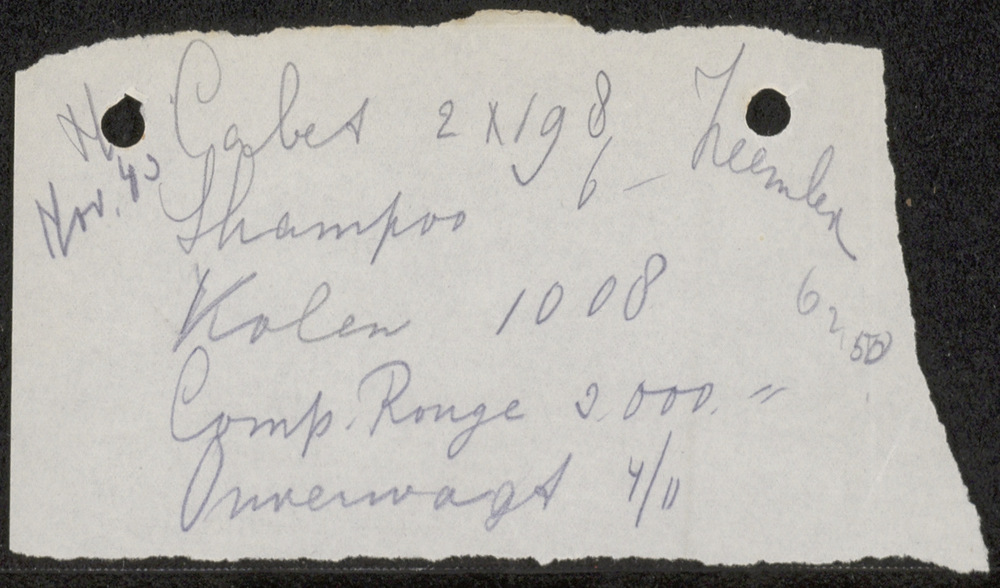 Nov. 40
Cabet 2 x 198
Shampoo 6 –
Kolen 1008
Comp. Rouge 2.000. =
Onverwagt 4/11
Zeemlex
62,50